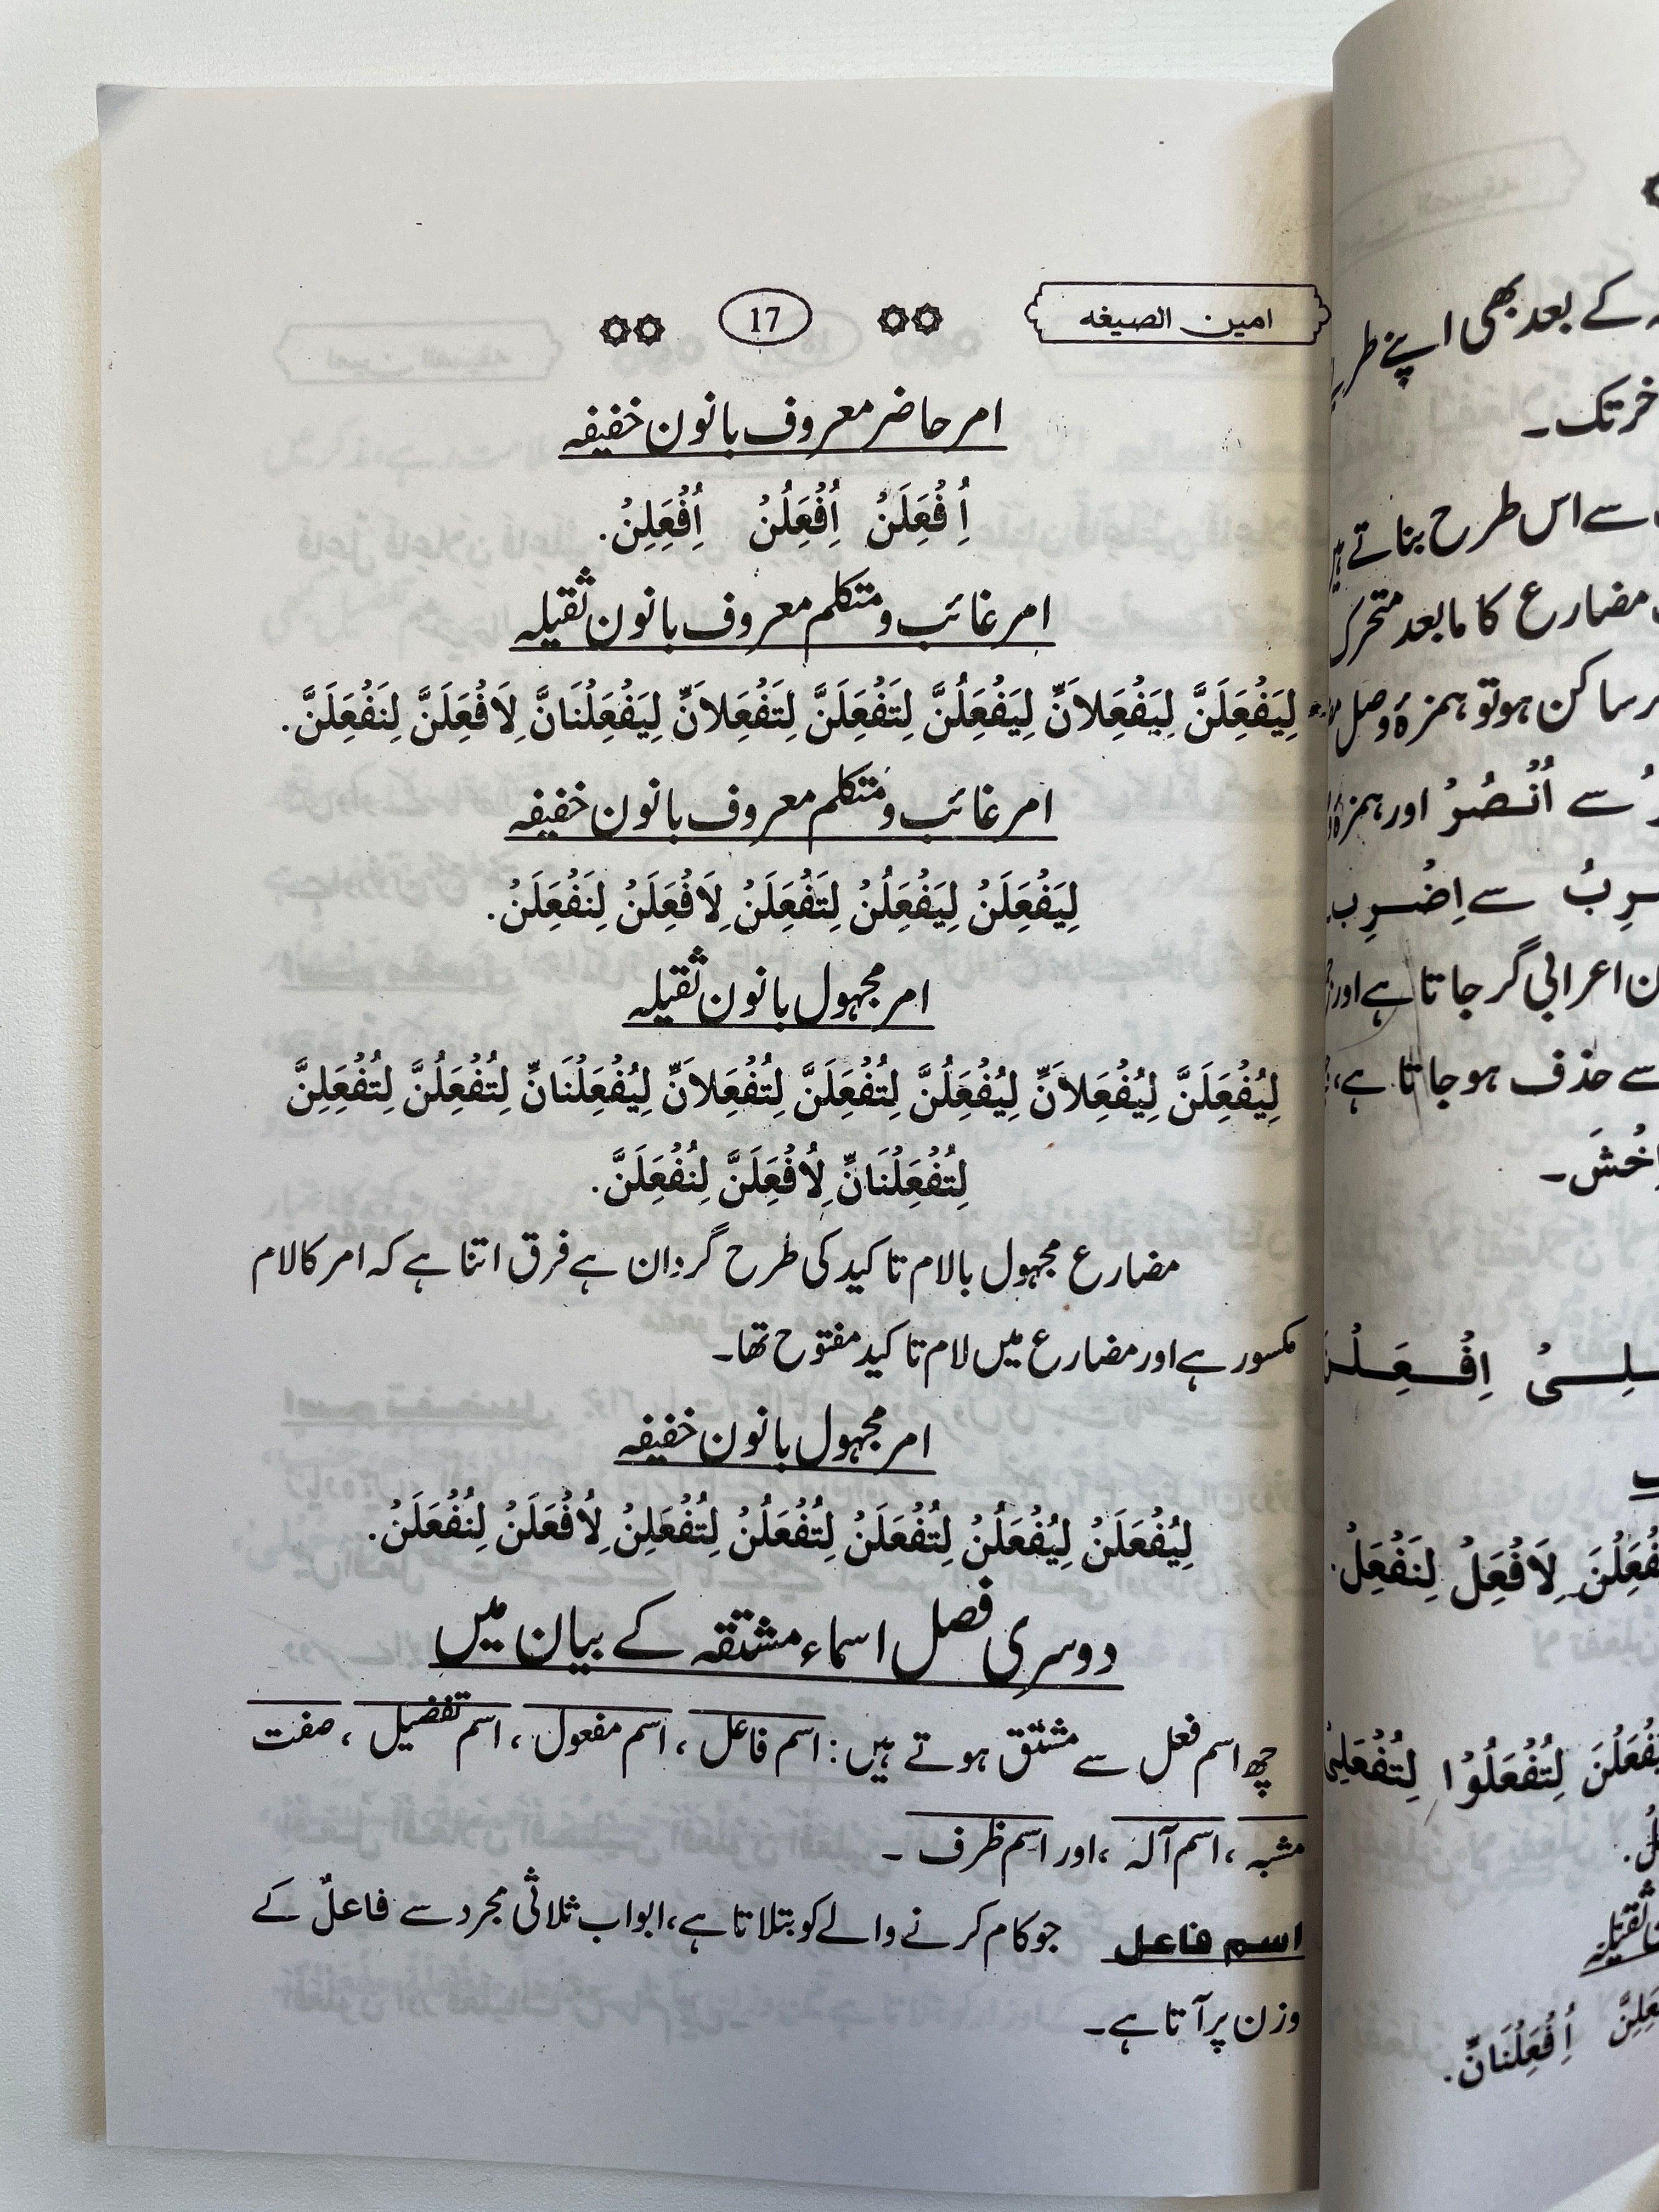 امین الصیغہ 17
امر حاضر معروف بانون خفیفہ
اُِفْعَلَنْ اُِفْعَلُنْ اُِفْعَلِنْ.
امر غائب و متکلم معروف بانون ثقیلہ
لِيَفْعَلَنَّ لِيَفْعَلاَنِّ لِيَفْعَلُنَّ لِتَفْعَلَنَّ لِتَفْعَلاَنِّ لِيَفْعَلْنَانِّ لِاَفْعَلَنَّ لِنَفْعَلَنَّ.
امر غائب و متکلم معروف بانون خفیفہ
لِيَفْعَلَنْ لِيَفْعَلُنْ لِتَفْعَلَنْ لِاَفْعَلَنْ لِنَفْعَلَنْ.
امر مجہول بانون ثقیلہ
لِيُفْعَلَنَّ لِيُفْعَلاَنِّ لِيُفْعَلُنَّ لِتُفْعَلَنَّ لِتُفْعَلاَنِّ لِيُفْعَلْنَانِّ لِتُفْعَلُنَّ لِتُفْعَلِنَّ
لِتُفْعَلْنَانِّ لِاُفْعَلَنَّ لِنُفْعَلَنَّ.
مضارع مجہول بالام تاکید کی طرح گردان ہے فرق اتنا ہے کہ امر کا لام
مکسور ہے اور مضارع میں لام تاکید مفتوح تھا۔
امر مجہول بانون خفیفہ
لِيُفْعَلَنْ لِيُفْعَلُنْ لِتُفْعَلَنْ لِتُفْعَلُنْ لِتُفْعَلِنْ لِاُفْعَلَنْ لِنُفْعَلَنْ.
دوسری فصل اسماء مشتقہ کے بیان میں
چھ اسم فعل سے مشتق ہوتے ہیں: اسم فاعل، اسم مفعول، اسم تفضیل، صفت
مشبہ، اسم آلہ، اور اسم ظرف۔
اسم فاعل جو کام کرنے والے کو بتلاتا ہے، ابواب ثلاثی مجرد سے فاعلٌ کے
وزن پر آتا ہے۔
کے بعد بھی اپنے
تک۔
سے اس طرح بناتے
مضارع کا مابعد متحرک
ساکن ہو تو ہمزۂ وصل
سے اُنْصُرْ اور ہمزۂ
سے اِضْرِب
اعرابی گر جاتا ہے اور
سے حذف ہو جاتا ہے،
لِاَفْعَلْ لِنَفْعَلْ.
لِتُفْعَلُوْا
اُِفْعَلْنَانِّ.